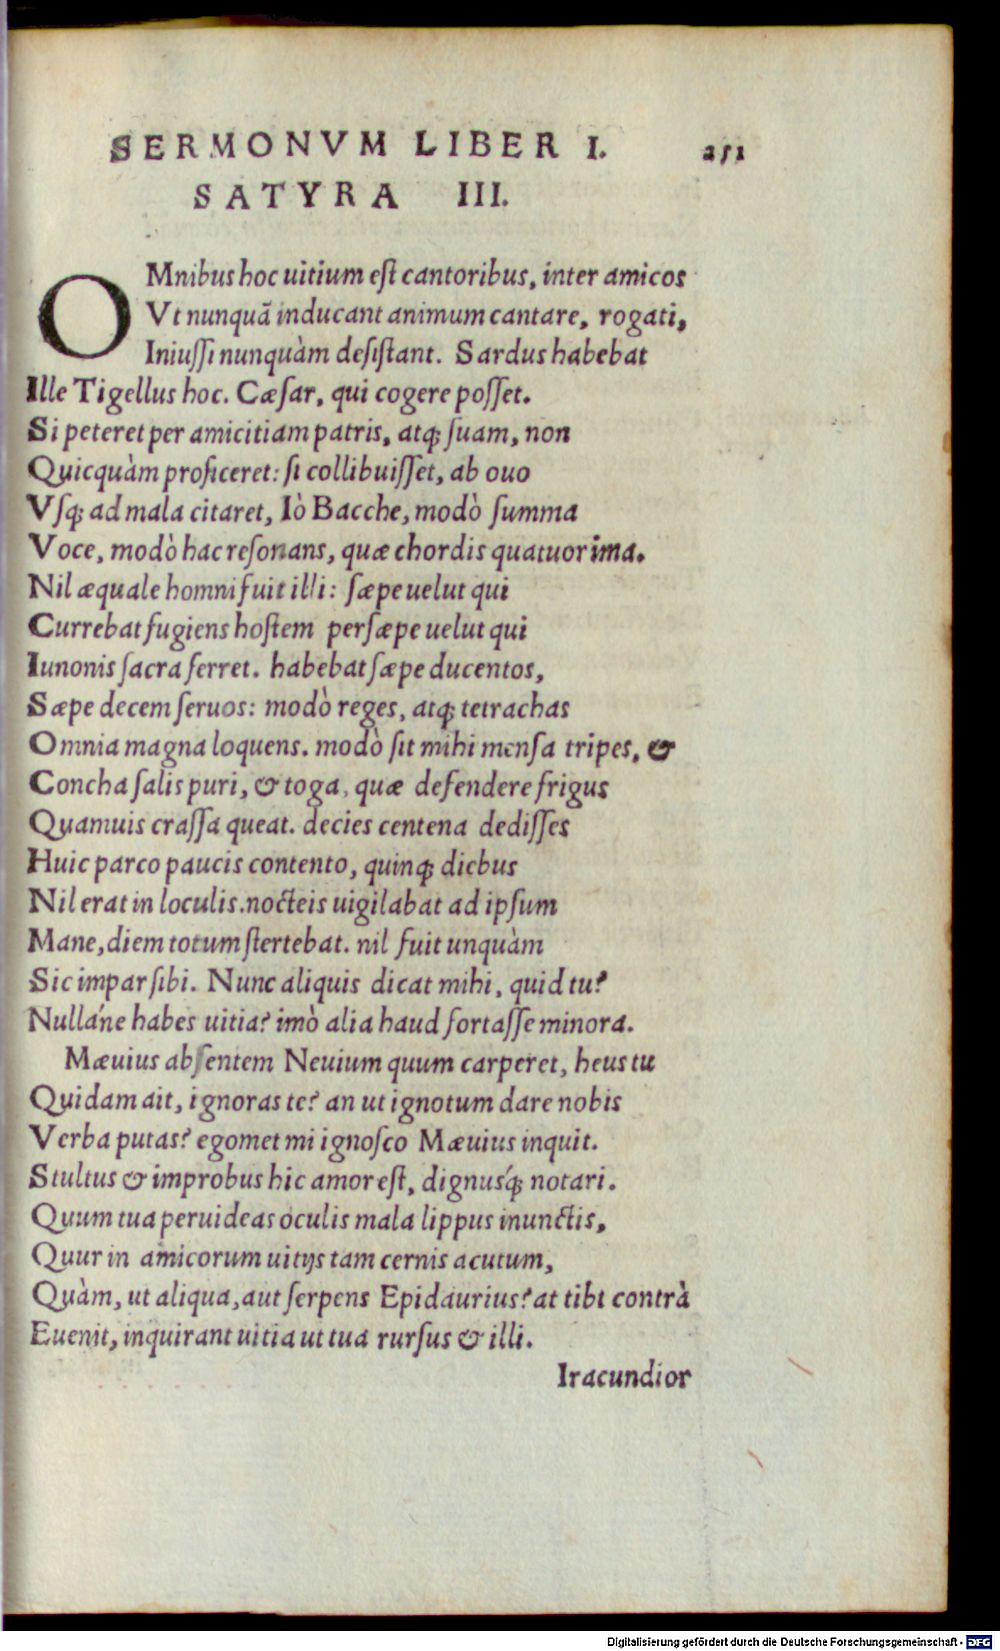 SERMONVM LIBER I. 251
SATYRA III.
OMnibus hoc uitium est cantoribus, inter amicos
Vt nunquã inducant animum cantare, rogati,
Iniussi nunquàm desistant. Sardus habebat
Ille Tigellus hoc. Cæsar, qui cogere posset.
Si peteret per amicitiam patris, atq; suam, non
Quicquàm proficeret: si collibuisset, ab ouo
Vsq; ad mala citaret, Iò Bacche, modò summa
Voce, modò hac resonans, quæ chordis quatuor ima.
Nil æquale homni fuit illi: sæpe uelut qui
Currebat fugiens hostem persæpe uelut qui
Iunonis sacra ferret. habebat sæpe ducentos,
Sæpe decem seruos: modò reges, atq; tetrachas
Omnia magna loquens. modò sit mihi mensa tripes, &
Concha salis puri, & toga, quæ defendere frigus
Quamuis crassa queat. decies centena dedisses
Huic parco paucis contento, quinq; diebus
Nil erat in loculis. nocteis uigilabat ad ipsum
Mane, diem totum stertebat. nil fuit unquàm
Sic impar sibi. Nunc aliquis dicat mihi, quid tu?
Nulláne habes uitia? imò alia haud fortasse minora.
Mæuius absentem Neuium quum carperet, heus tu
Quidam ait, ignoras te? an ut ignotum dare nobis
Verba putas? egomet mi ignosco Mæuius inquit.
Stultus & improbus hic amor est, dignusq́; notari.
Quum tua peruideas oculis mala lippus inunctis,
Quur in amicorum uitijs tam cernis acutum,
Quàm, ut aliqua, aut serpens Epidaurius? at tibt contrà
Euenit, inquirant uitia ut tua rursus & illi.
Iracundior
Digitalisierung gefördert durch die Deutsche Forschungsgemeinschaft - DFG